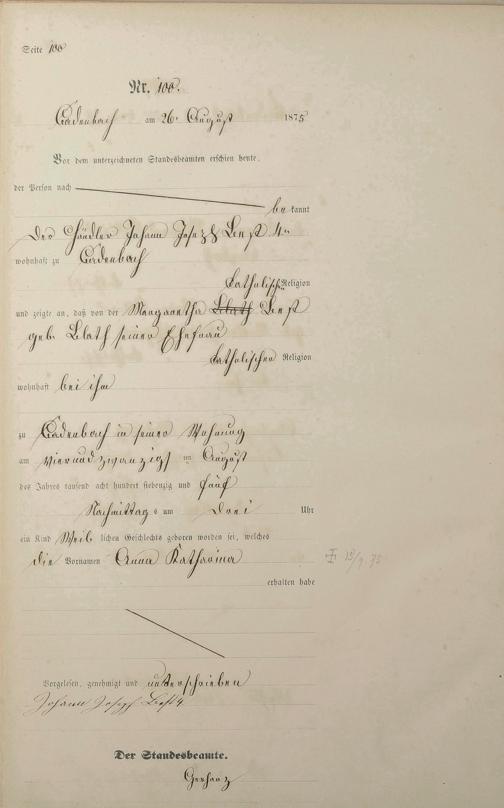 Seite 100
Nr. 100.
Cadenbach am 26. August 1875
Vor dem unterzeichneten Standesbeamten erschien heute,
der Person nach
be kannt
Der Händler Johann Joseph Best 4.
wohnhaft zu Cadenbach
katholischer Religion
und zeigte an, daß von der Margaretha Blath Best
geb. Blath seiner Ehefrau
katholischer Religion
wohnhaft bei ihm
zu Cadenbach in seiner Wohnung
am vierundzwanzigst en August
des Jahres tausend acht hundert siebenzig und fünf
Nachmittag s um Drei Uhr
ein Kind Weib lichen Geschlechts geboren worden sei, welches
die Vornamen Anna Katharina
erhalten habe
Vorgelesen, genehmigt und unterschrieben
Johann Joseph Best 4
Der Standesbeamte.
Gerharz